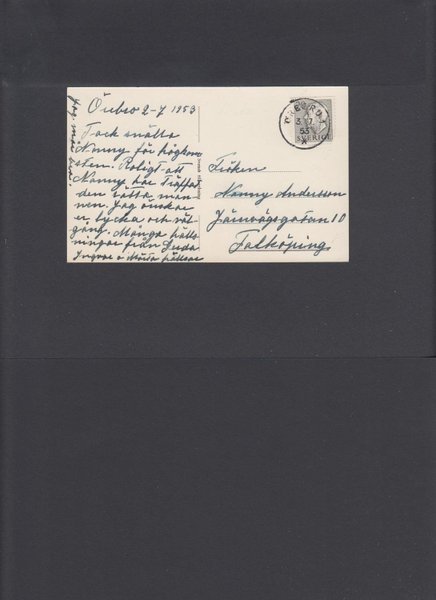 Örebro 2-7 1953
Tack snälla
Nanny för högkom-
sten. Roligt att
Nanny har träffat
den rätta man-
nen. Jag önskar
er lycka och väl-
gång. Många häls-
ningar från Gerda
Ingvar o Märta hälsar
ÖREBRO 1
3. 7.
53
SVERIGE
Fröken
Nanny Andersson
Järnvägsgatan 10
Falköping